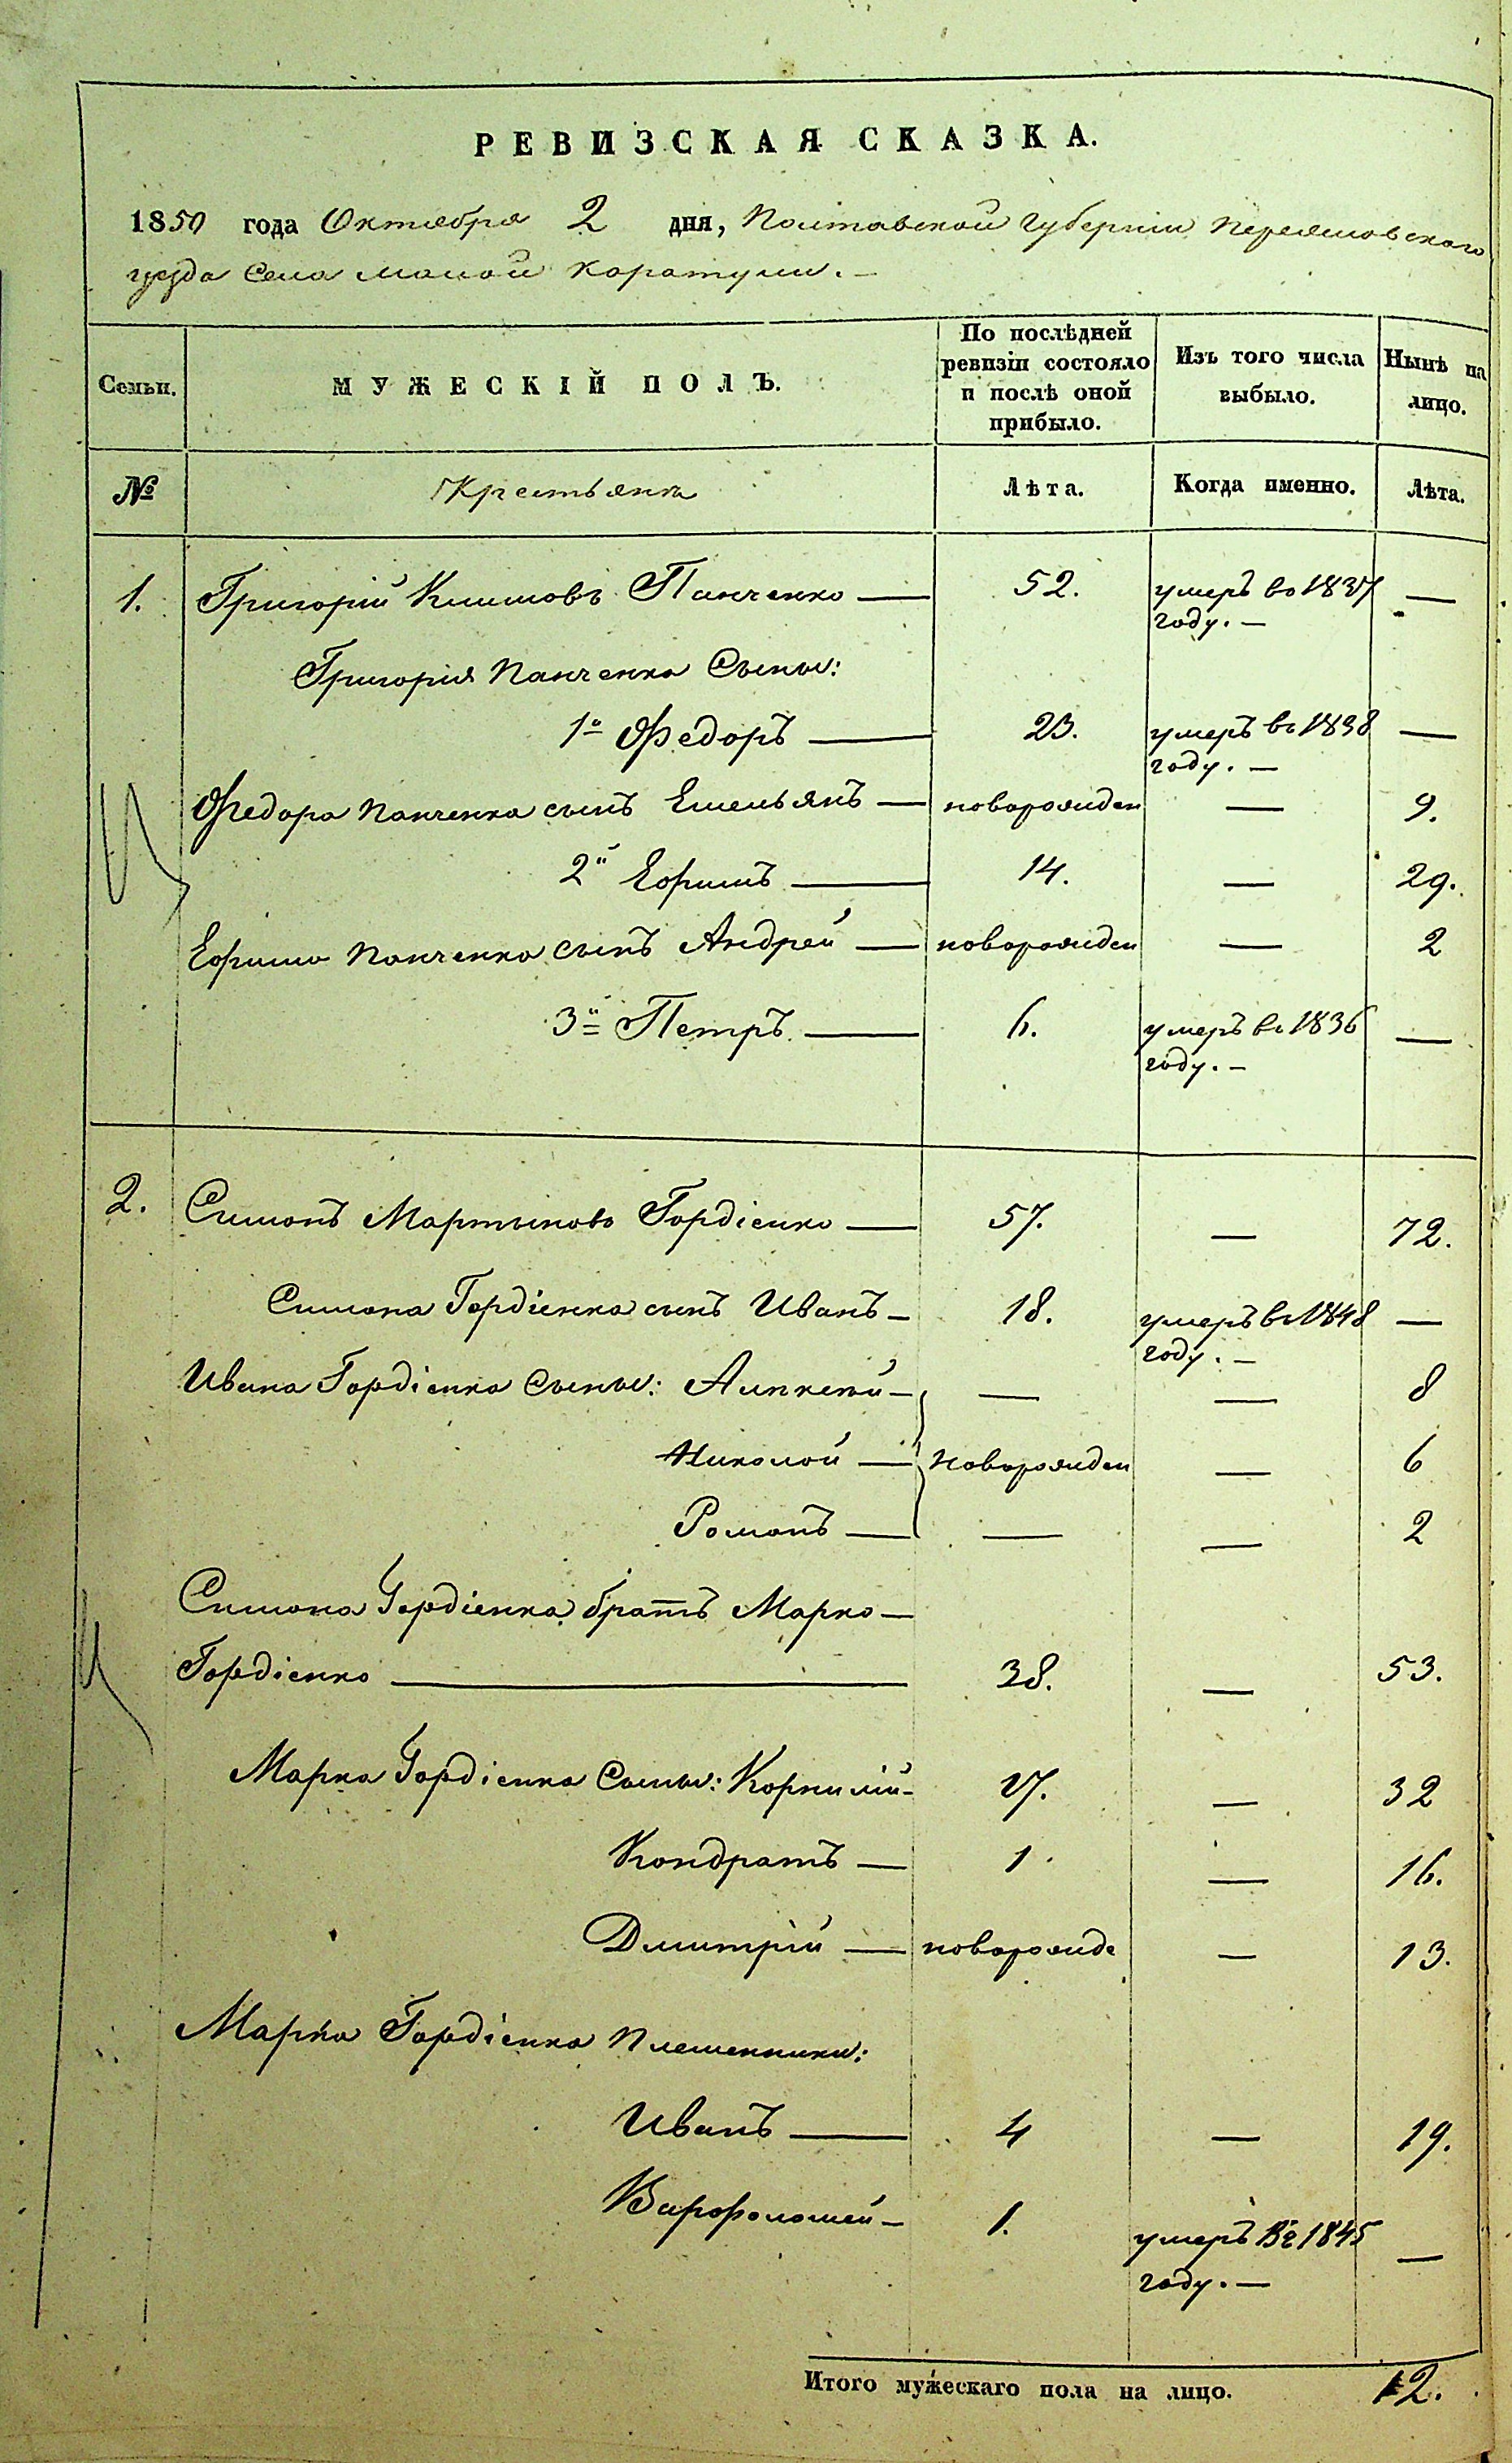 РЕВИЗСКАЯ СКАЗКА.
1850 года Октября 2 дня, Полтавской Губерніи Переясловского
уезда Села Малой Каратули. —
Семьи.
МУЖЕСКІЙ ПОЛЪ.
По послѣдней
ревизіи состояло
и послѣ оной
прибыло.
Изъ того числа
выбыло.
Нынѣ на
лицо.
№ Крестьянъ Лѣта. Когда именно. Лѣта.
1. Григорій Климовъ Панченко — 52. умеръ во 1837 —
году. —
Григорія Панченка Сыны:
1й Федоръ — 23. умеръ въ 1838 —
году. —
Федора Панченка сынъ Емельянъ — новорожден — 9.
2й Ефимъ — 14. — 29.
Ефима Панченка сынъ Андрей — новорожден — 2
3й Петръ — 6. умеръ въ 1836 —
году. —
2. Симонъ Мартыновъ Гордіенко — 57. — 72.
Симона Гордіенка сынъ Иванъ — 18. умеръ въ 1848 —
году. —
Ивана Гордіенка Сыны: Алексей — — — 8
Николай — новорожден — 6
Романъ — — — 2
Симона Гордіенка братъ Марко —
Гордіенко — 38. — 53.
Марка Гордіенка Сыны: Корнилій — 17. — 32
Кондратъ — 1. — 16.
Дмитрій — новорожде — 13.
Марка Гордіенка племенники:
Иванъ — 4 — 19.
Варфоломей — 1. умеръ Въ 1845 —
году. —
Итого мужескаго пола на лицо. 12.